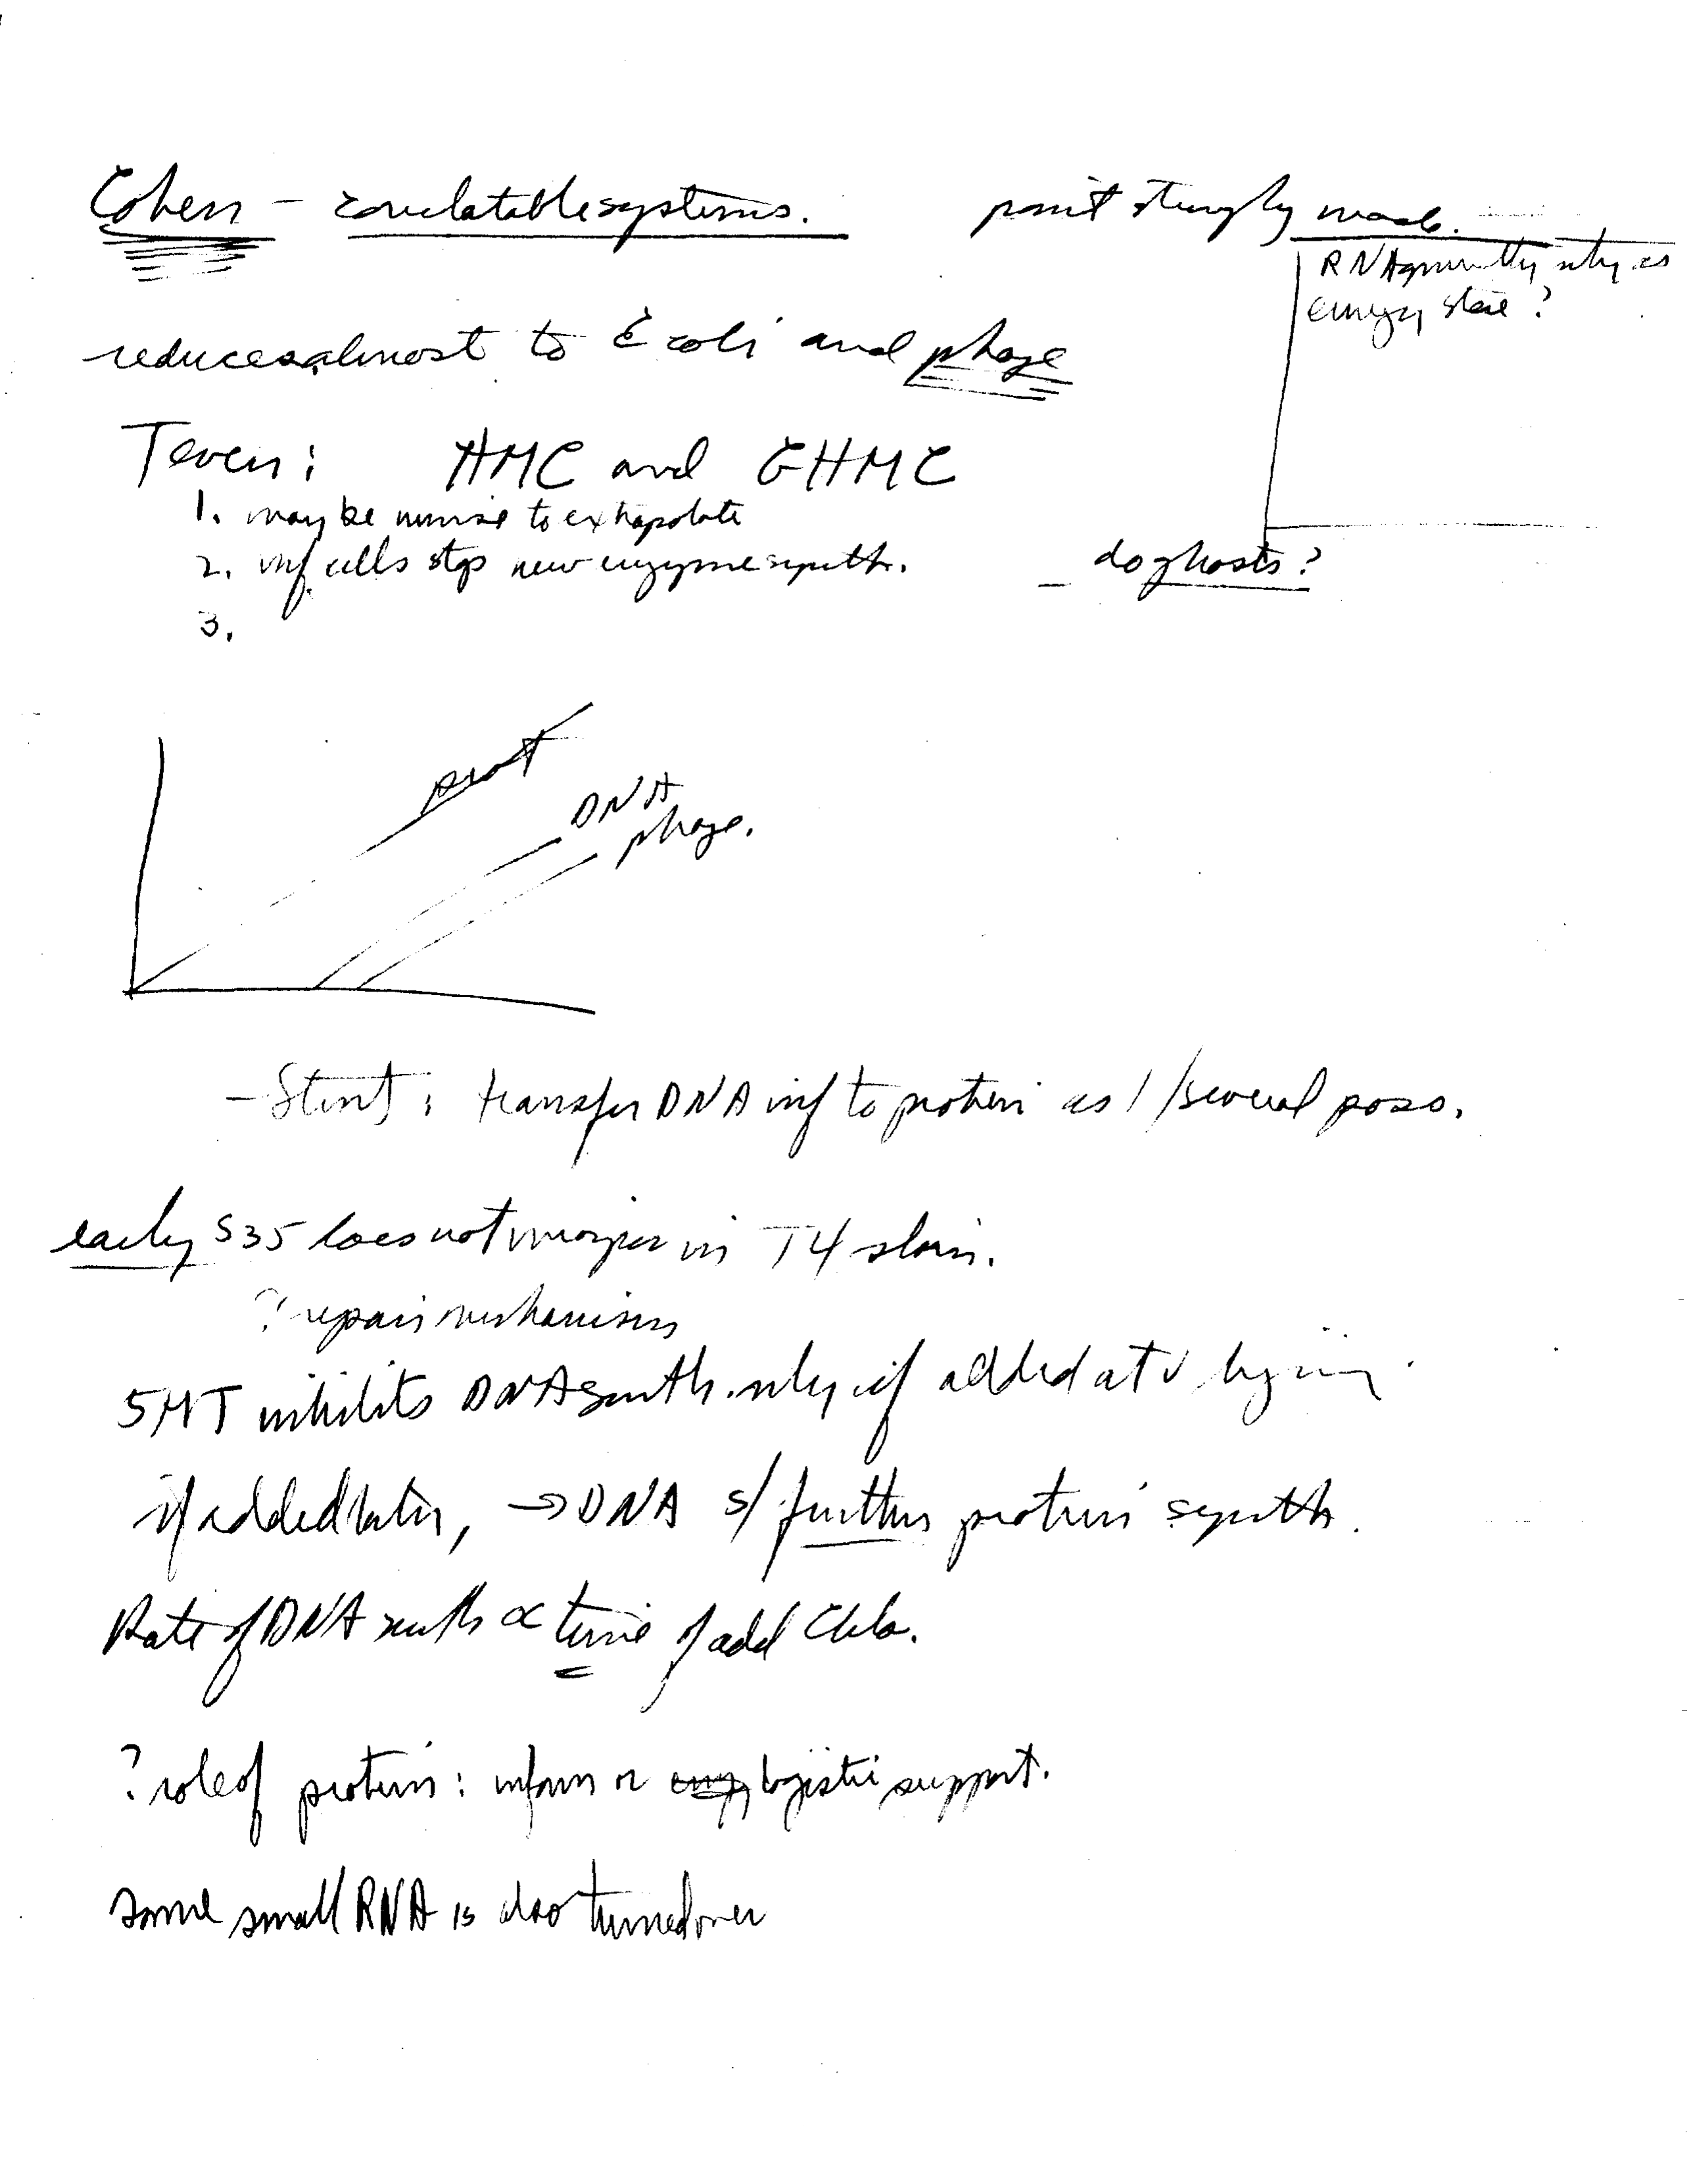 Cohen - correlatable systems. point strongly made.
RNA only as
energy store?
reduces almost to E coli and phage
T even: HMC and GHMC
1. may be unwise to extrapolate
2. inf cells stop new enzyme synth. - do ghosts?
3.
prot
DNA
phage.
- Stent: transfer DNA inf to protein as 1/several pass.
early S35 does not in T4
? repair mechanism
5MT inhibits DNA synth. only if added at
if added later, → DNA s/ further protein synth.
Rate of DNA synth ∝ time of add Chlo.
? role of protein: inform or logistic support.
some small RNA is also turned over